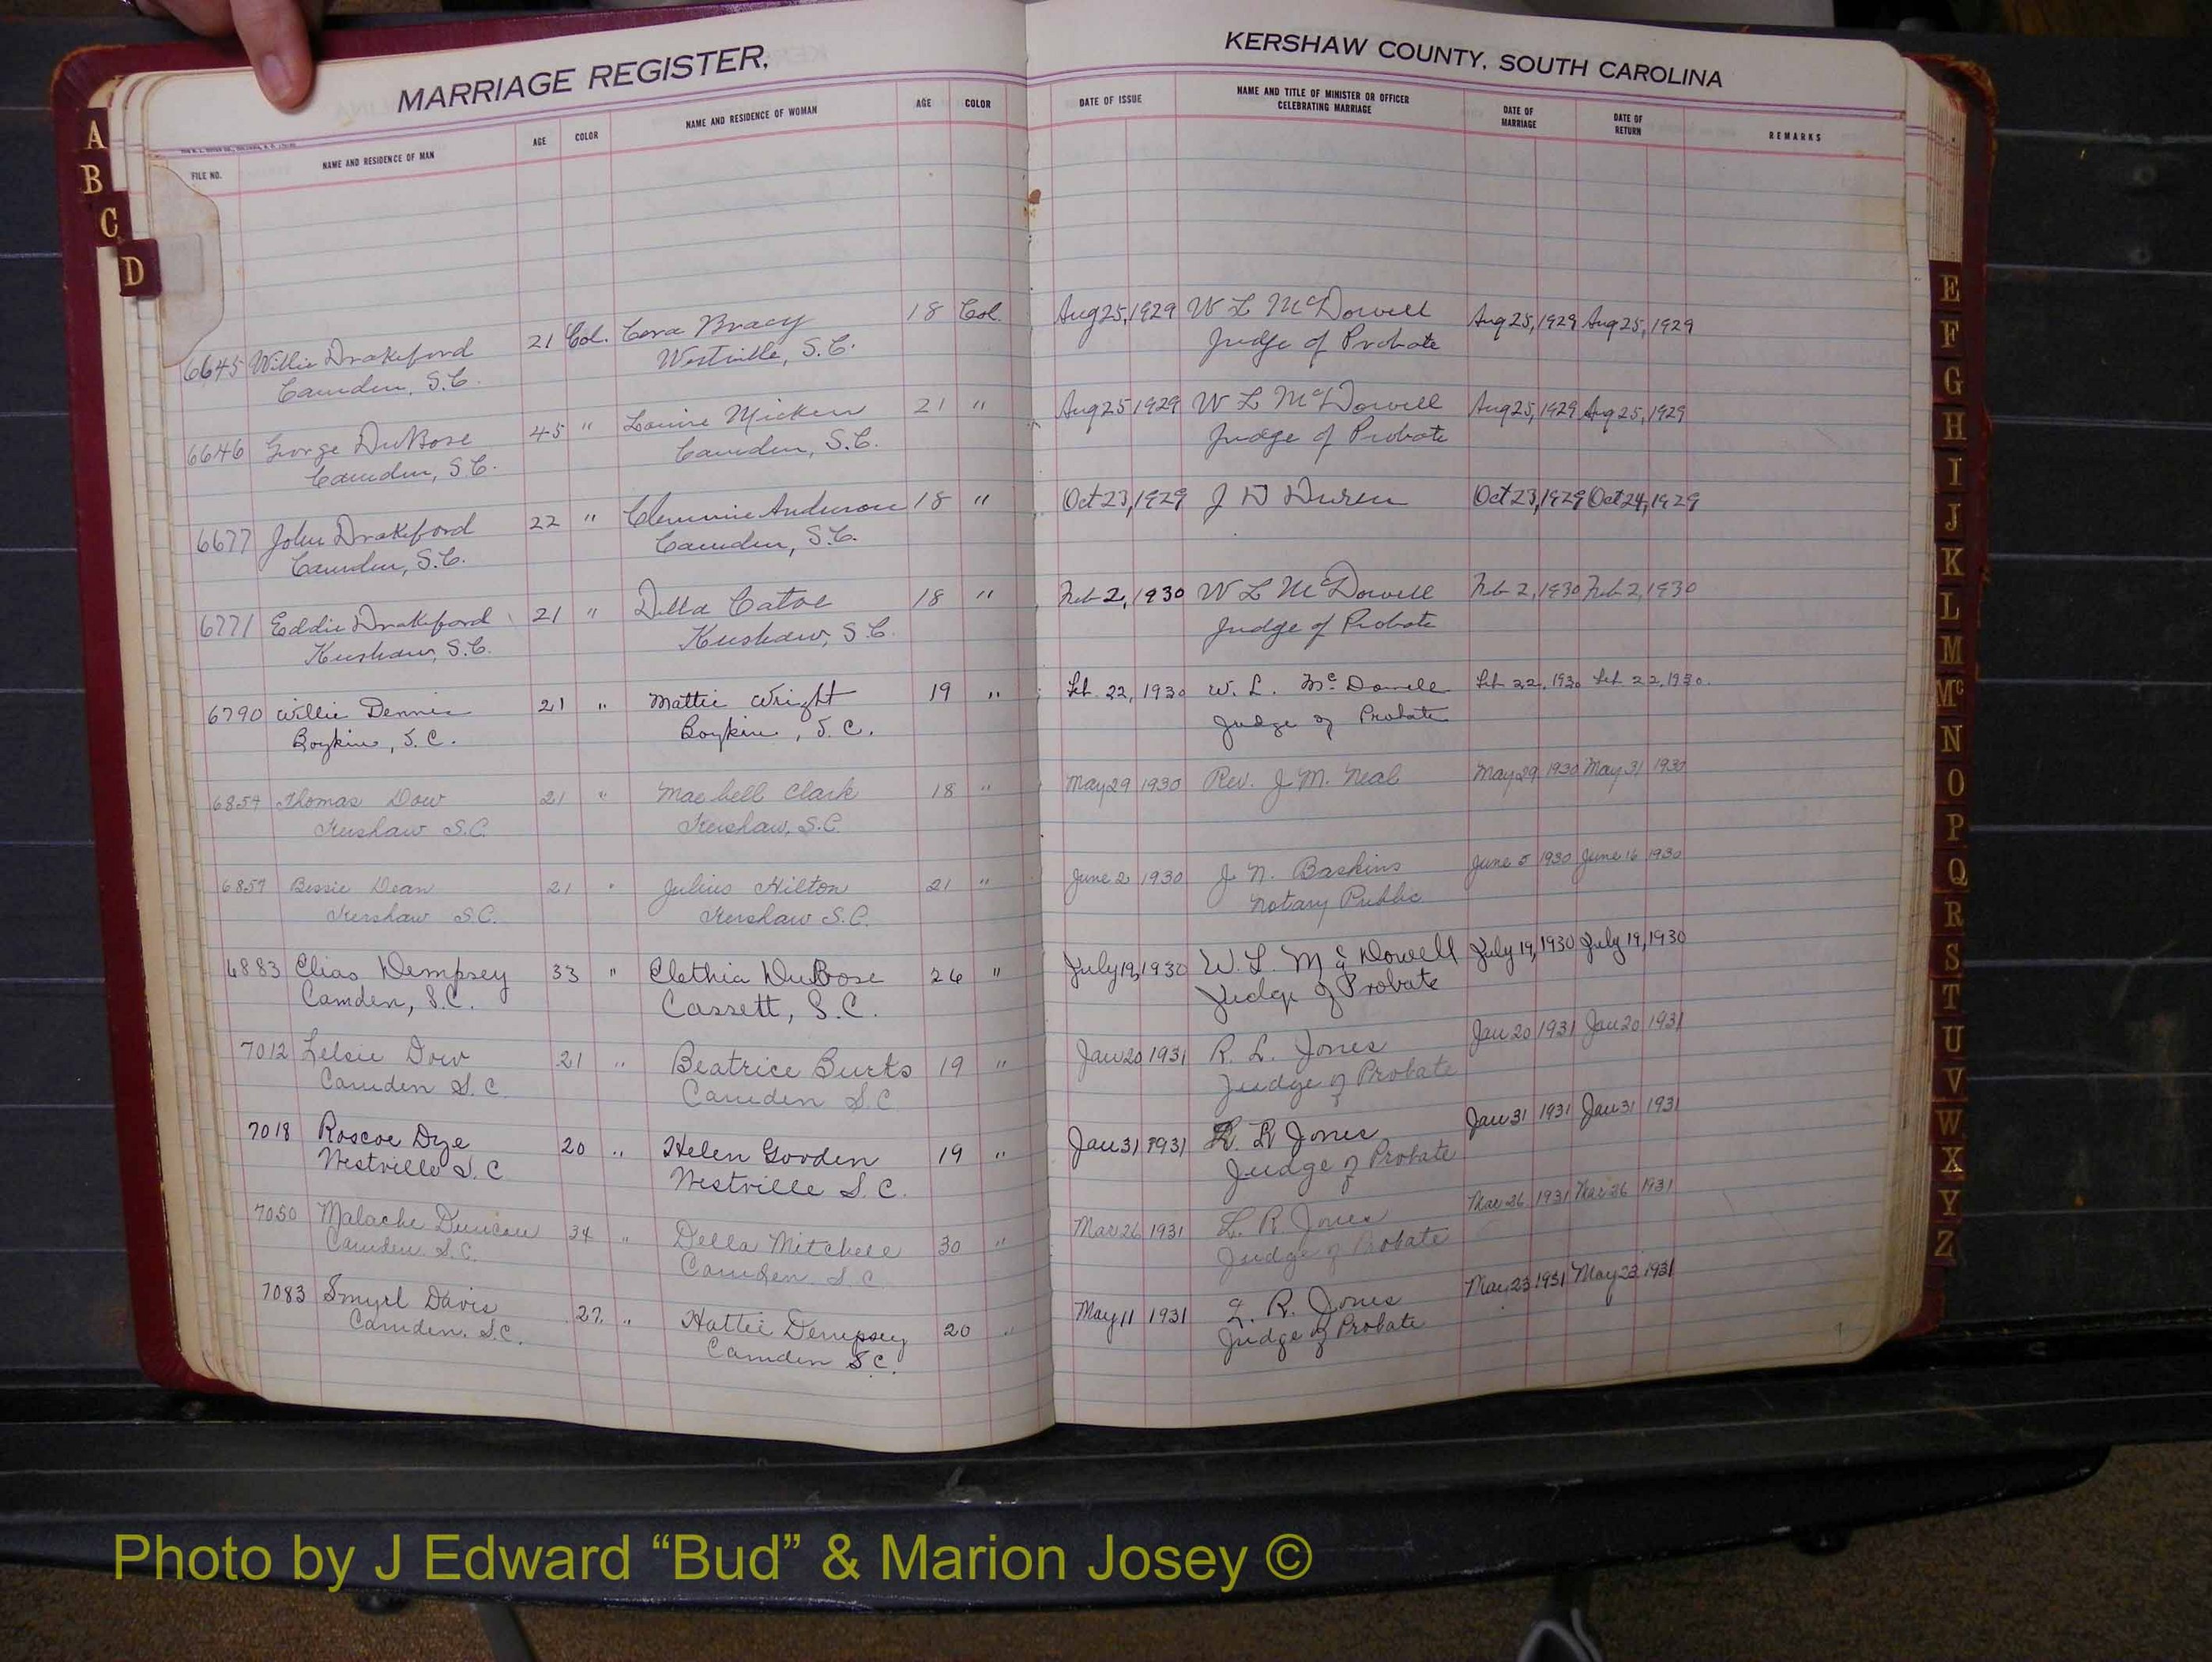 MARRIAGE REGISTER,
KERSHAW COUNTY, SOUTH CAROLINA
FILE NO. NAME AND RESIDENCE OF MAN AGE COLOR NAME AND RESIDENCE OF WOMAN AGE COLOR DATE OF ISSUE NAME AND TITLE OF MINISTER OR OFFICER CELEBRATING MARRIAGE DATE OF MARRIAGE DATE OF RETURN REMARKS
6645 Willie Drakeford 21 Col. Cora Bracy 18 Col. Aug 25, 1929 W L McDowell Aug 25, 1929 Aug 25, 1929
Camden, S.C. Westville, S.C. Judge of Probate
6646 George DuBose 45 " Louise Micken 21 " Aug 25 1929 W L McDowell Aug 25, 1929 Aug 25, 1929
Camden, S.C. Camden, S.C. Judge of Probate
6677 John Drakeford 22 " Clemmie Anderson 18 " Oct 23, 1929 J D Duren Oct 23, 1929 Oct 24, 1929
Camden, S.C. Camden, S.C.
6771 Eddie Drakeford 21 " Della Catoe 18 " Feb 2, 1930 W L McDowell Feb 2, 1930 Feb 2, 1930
Kershaw, S.C. Kershaw, S.C. Judge of Probate
6790 Willie Dennis 21 " Mattie Wright 19 " Feb. 22, 1930 W. L. McDowell Feb 22, 1930 Feb 22, 1930.
Boykin, S.C. Boykin, S.C. Judge of Probate
6854 Thomas Dow 21 " Maebell Clark 18 " May 29 1930 Rev. J M. Neal May 29 1930 May 31 1930
Kershaw S.C. Kershaw, S.C.
6857 Bessie Dean 21 " Julius Hilton 21 " June 2 1930 J. N. Baskins June 5 1930 June 16 1930
Kershaw S.C. Kershaw S.C. Notary Public
6883 Elias Dempsey 33 " Clethia DuBose 26 " July 19, 1930 W. L. McDowell July 19, 1930 July 19, 1930
Camden, S.C. Cassett, S.C. Judge of Probate
7012 Lelsie Dow 21 " Beatrice Burks 19 " Jan 20 1931 R. L. Jones Jan 20 1931 Jan 20 1931
Camden S.C. Camden S.C Judge of Probate
7018 Roscoe Dye 20 " Helen Gooden 19 " Jan 31 1931 Jones Jan 31 1931 Jan 31 1931
Westville S.C Westville S.C. Judge of Probate
7050 Malache Duncan 34 " Della Mitchell 30 " Mar 26 1931 L. R. Jones Mar 26 1931 Mar 26 1931
Camden. S.C. Camden. S.C Judge of Probate
7083 Smyrl Davis 27 " Hattie Dempsey 20 " May 11 1931 L. R. Jones May 23 1931 May 23 1931
Camden. S.C. Camden S.C. Judge of Probate
A
B
C
D
E
F
G
H
I
J
K
L
M
Mc
N
O
P
Q
R
S
T
U
V
W
X
Y
Z
Photo by J Edward “Bud” & Marion Josey ©